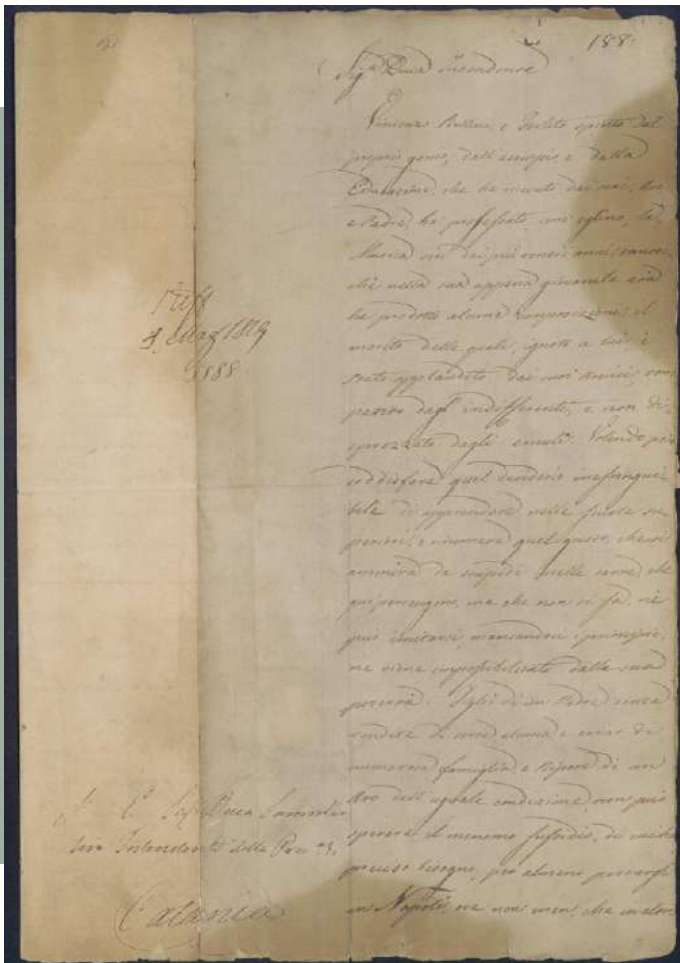 188.
Sig.r Duca Intendente
Vincenzo Bellini, e Ferlito spinto dal
proprio genio, dall'esempio e dalla
Educazione, che ha ricevuto dai suoi, Avo
e Padre, ha professato, con eglino, la
Musica sin dai più teneri anni,
chè nella sua appena giovanile età
ha prodotto alcune composizioni, il
merito delle quali, ignoto a lui è
stato applaudito dai suoi Amici, com
patito dagl'indifferenti, e non di
sprezzato dagli emuli. Volendo però
soddisfare quel desiderio inestingui
bile di apprendere nelle scuole su
periori, e rinvenire quel gusto, che si
ammira da stupidi nelle opere, che
qui pervengono, ma che non si fa, nè
può imitarsi, mancandoci i principi,
ne viene impossibilitato dalla sua
povertà. Figlio di un Padre senza
rendite di sorte alcuna e carico di
numerosa famiglia e Nipote di un
Avo dell'uguale condizione, non può
sperare il menomo sussidio, di cui ha
preciso bisogno, per almeno portarsi
in Napoli, ove non men, che in altre
1819
3188
Sig.r Duca Sammartino
Intendente della
Catania